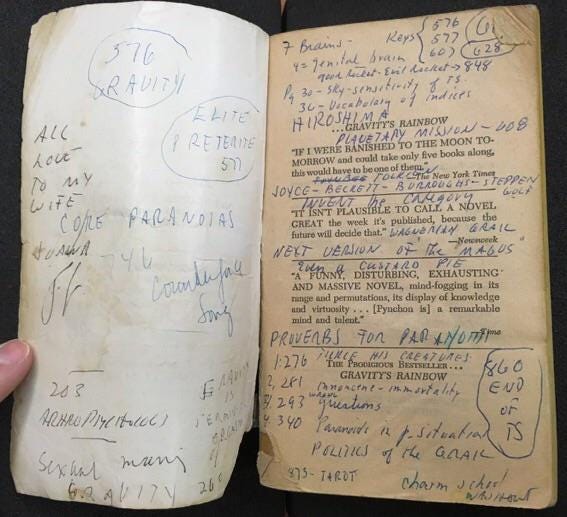 576
GRAVITY
ELITE
PRETERITE
577
ALL
LOVE
TO MY
WIFE
CORE PARANOIAS
JUANA
746
Counterforce
Song
203
GRAVITY
IS
OF
Sexual
GRAVITY
7 Brains -
Keys
576
577
607
628
4 = genital brain
good Rocket - Evil Rocket → 848
Pg 30 - Sky - sensitivity of TS.
36 - Vocabulary of indices
HIROSHIMA
...GRAVITY'S RAINBOW
PLANETARY MISSION - 608
"IF I WERE BANISHED TO THE MOON TO-
MORROW and could take only five books along,
this would have to be one of them."
—The New York Times
JOYCE - BECKETT - BURROUGHS - STEPPEN
WOLF
INVENT the CATEGORY
"IT ISN'T PLAUSIBLE TO CALL A NOVEL
GREAT the week it's published, because the
future will decide that." WAGNERIAN GRAIL
—Newsweek
NEXT VERSION of the "MAGUS"
Even a CUSTARD PIE
"A FUNNY, DISTURBING, EXHAUSTING
AND MASSIVE NOVEL, mind-fogging in its
range and permutations, its display of knowledge
and virtuosity . . . [Pynchon] is a remarkable
mind and talent."
—Time
PROVERBS FOR PARANOIDS
1. 276 TICKLE HIS CREATURES
THE PRODIGIOUS BESTSELLER...
GRAVITY'S RAINBOW
2. 281 innocence - immortality
3. 293 wrong questions
4. 340 Paranoids in p. situation
860
END
OF
TS
POLITICS of the GRAIL
875 - TAROT
charm school